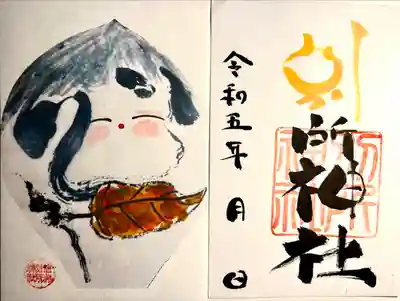 別所神社
令和五年 月 日